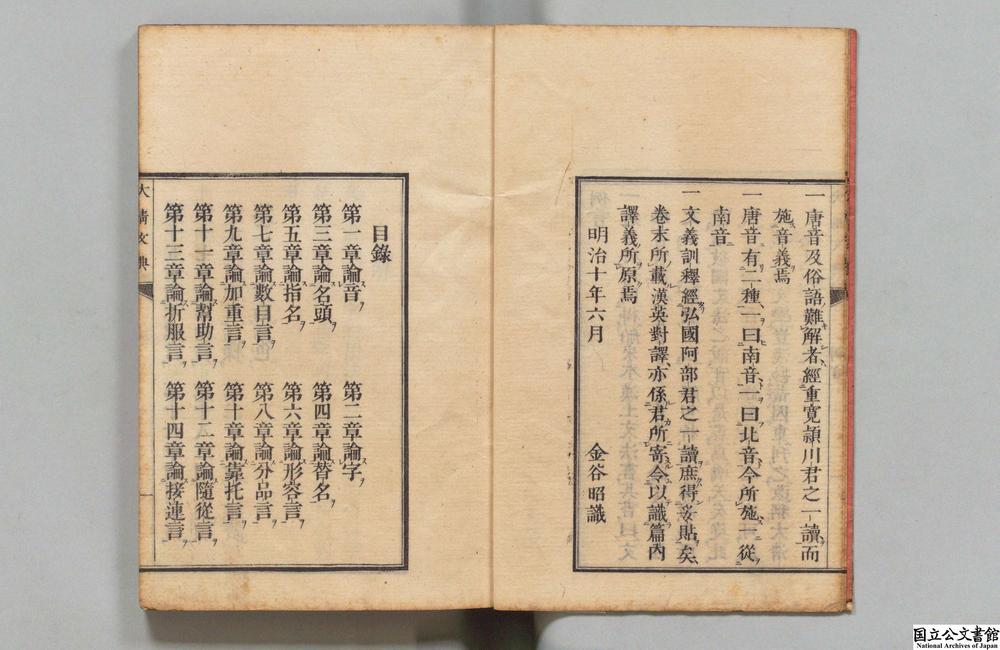 一唐音及俗語難解者經重寛頴川君之一讀而
施音義焉
一唐音有二種一曰南音一曰北音今所施一從
南音
一文義訓釋經弘國阿部君之一讀庶得妥貼矣
卷末所載漢英對譯亦係君所寄令以識篇內
譯義所原焉
明治十年六月
金谷昭識
目錄
第一章論音ヲ
第二章論字ヲ
第三章論名頭ヲ
第四章論替名ヲ
第五章論指名ヲ
第六章論形容言ヲ
第七章論數目言ヲ
第八章論分品言ヲ
第九章論加重言ヲ
第十章論靠托言ヲ
第十一章論幫助言ヲ
第十二章論隨從言ヲ
第十三章論折服言ヲ
第十四章論接連言ヲ
大清文典
国立公文書館
National Archives of Japan